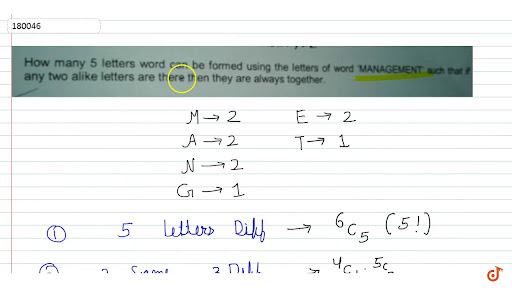 180046
How many 5 letters word can be formed using the letters of word 'MANAGEMENT' such that if
any two alike letters are there then they are always together.
M → 2 E → 2
A → 2 T → 1
N → 2
G → 1
① 5 letters Diff → ⁶C₅ (5!)